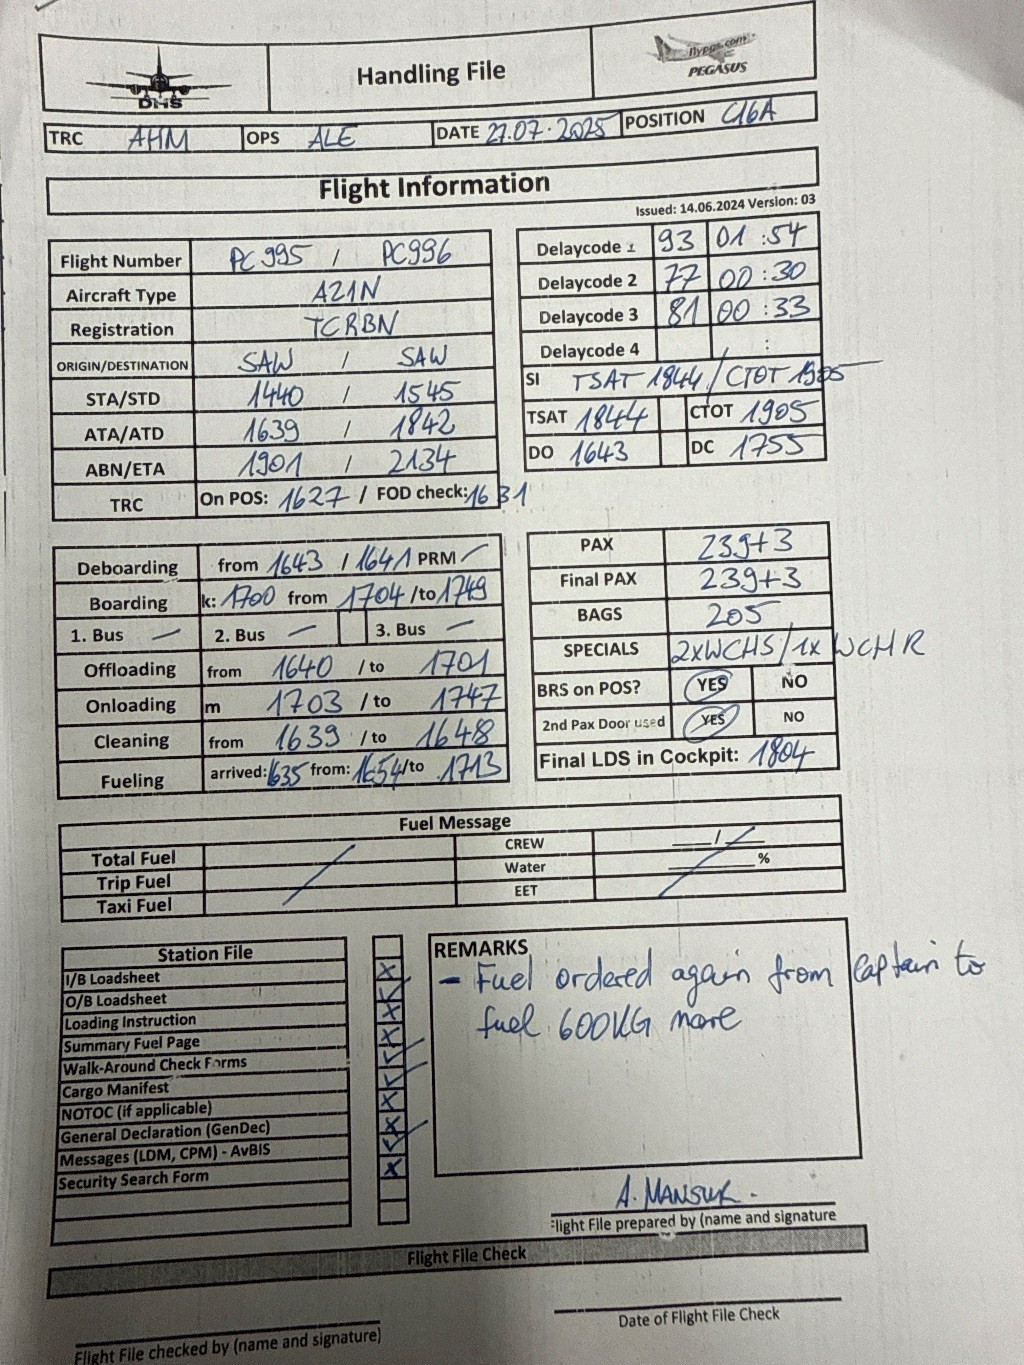 DHS
Handling File
flypgs.com
PEGASUS
TRC AHM OPS ALE DATE 27.07.2025 POSITION C16A
Flight Information
Issued: 14.06.2024 Version: 03
Flight Number PC995 / PC996
Aircraft Type A21N
Registration TCRBN
ORIGIN/DESTINATION SAW / SAW
STA/STD 1440 / 1545
ATA/ATD 1639 / 1842
ABN/ETA 1901 / 2134
TRC On POS: 1627 / FOD check: 1631
Delaycode 1 93 01:54
Delaycode 2 77 00:30
Delaycode 3 81 00:33
Delaycode 4 :
SI TSAT 1844 / CTOT 1905
TSAT 1844 CTOT 1905
DO 1643 DC 1755
Deboarding from 1643 / 1641 PRM —
Boarding k: 1700 from 1704 /to 1749
1. Bus — 2. Bus — 3. Bus —
Offloading from 1640 / to 1701
Onloading m 1703 / to 1747
Cleaning from 1639 / to 1648
Fueling arrived: 1635 from: 1654 /to 1713
PAX 239+3
Final PAX 239+3
BAGS 205
SPECIALS 2xWCHS/1x WCHR
BRS on POS? YES NO
2nd Pax Door used YES NO
Final LDS in Cockpit: 1804
Fuel Message
Total Fuel CREW ___/___
Trip Fuel Water ______%
Taxi Fuel EET
Station File
I/B Loadsheet
O/B Loadsheet
Loading Instruction
Summary Fuel Page
Walk-Around Check Forms
Cargo Manifest
NOTOC (if applicable)
General Declaration (GenDec)
Messages (LDM, CPM) - AvBIS
Security Search Form
REMARKS
- Fuel ordered again from Captain to
fuel 600KG more
A. MANSUR.
Flight File prepared by (name and signature
Flight File Check
Flight File checked by (name and signature)
Date of Flight File Check